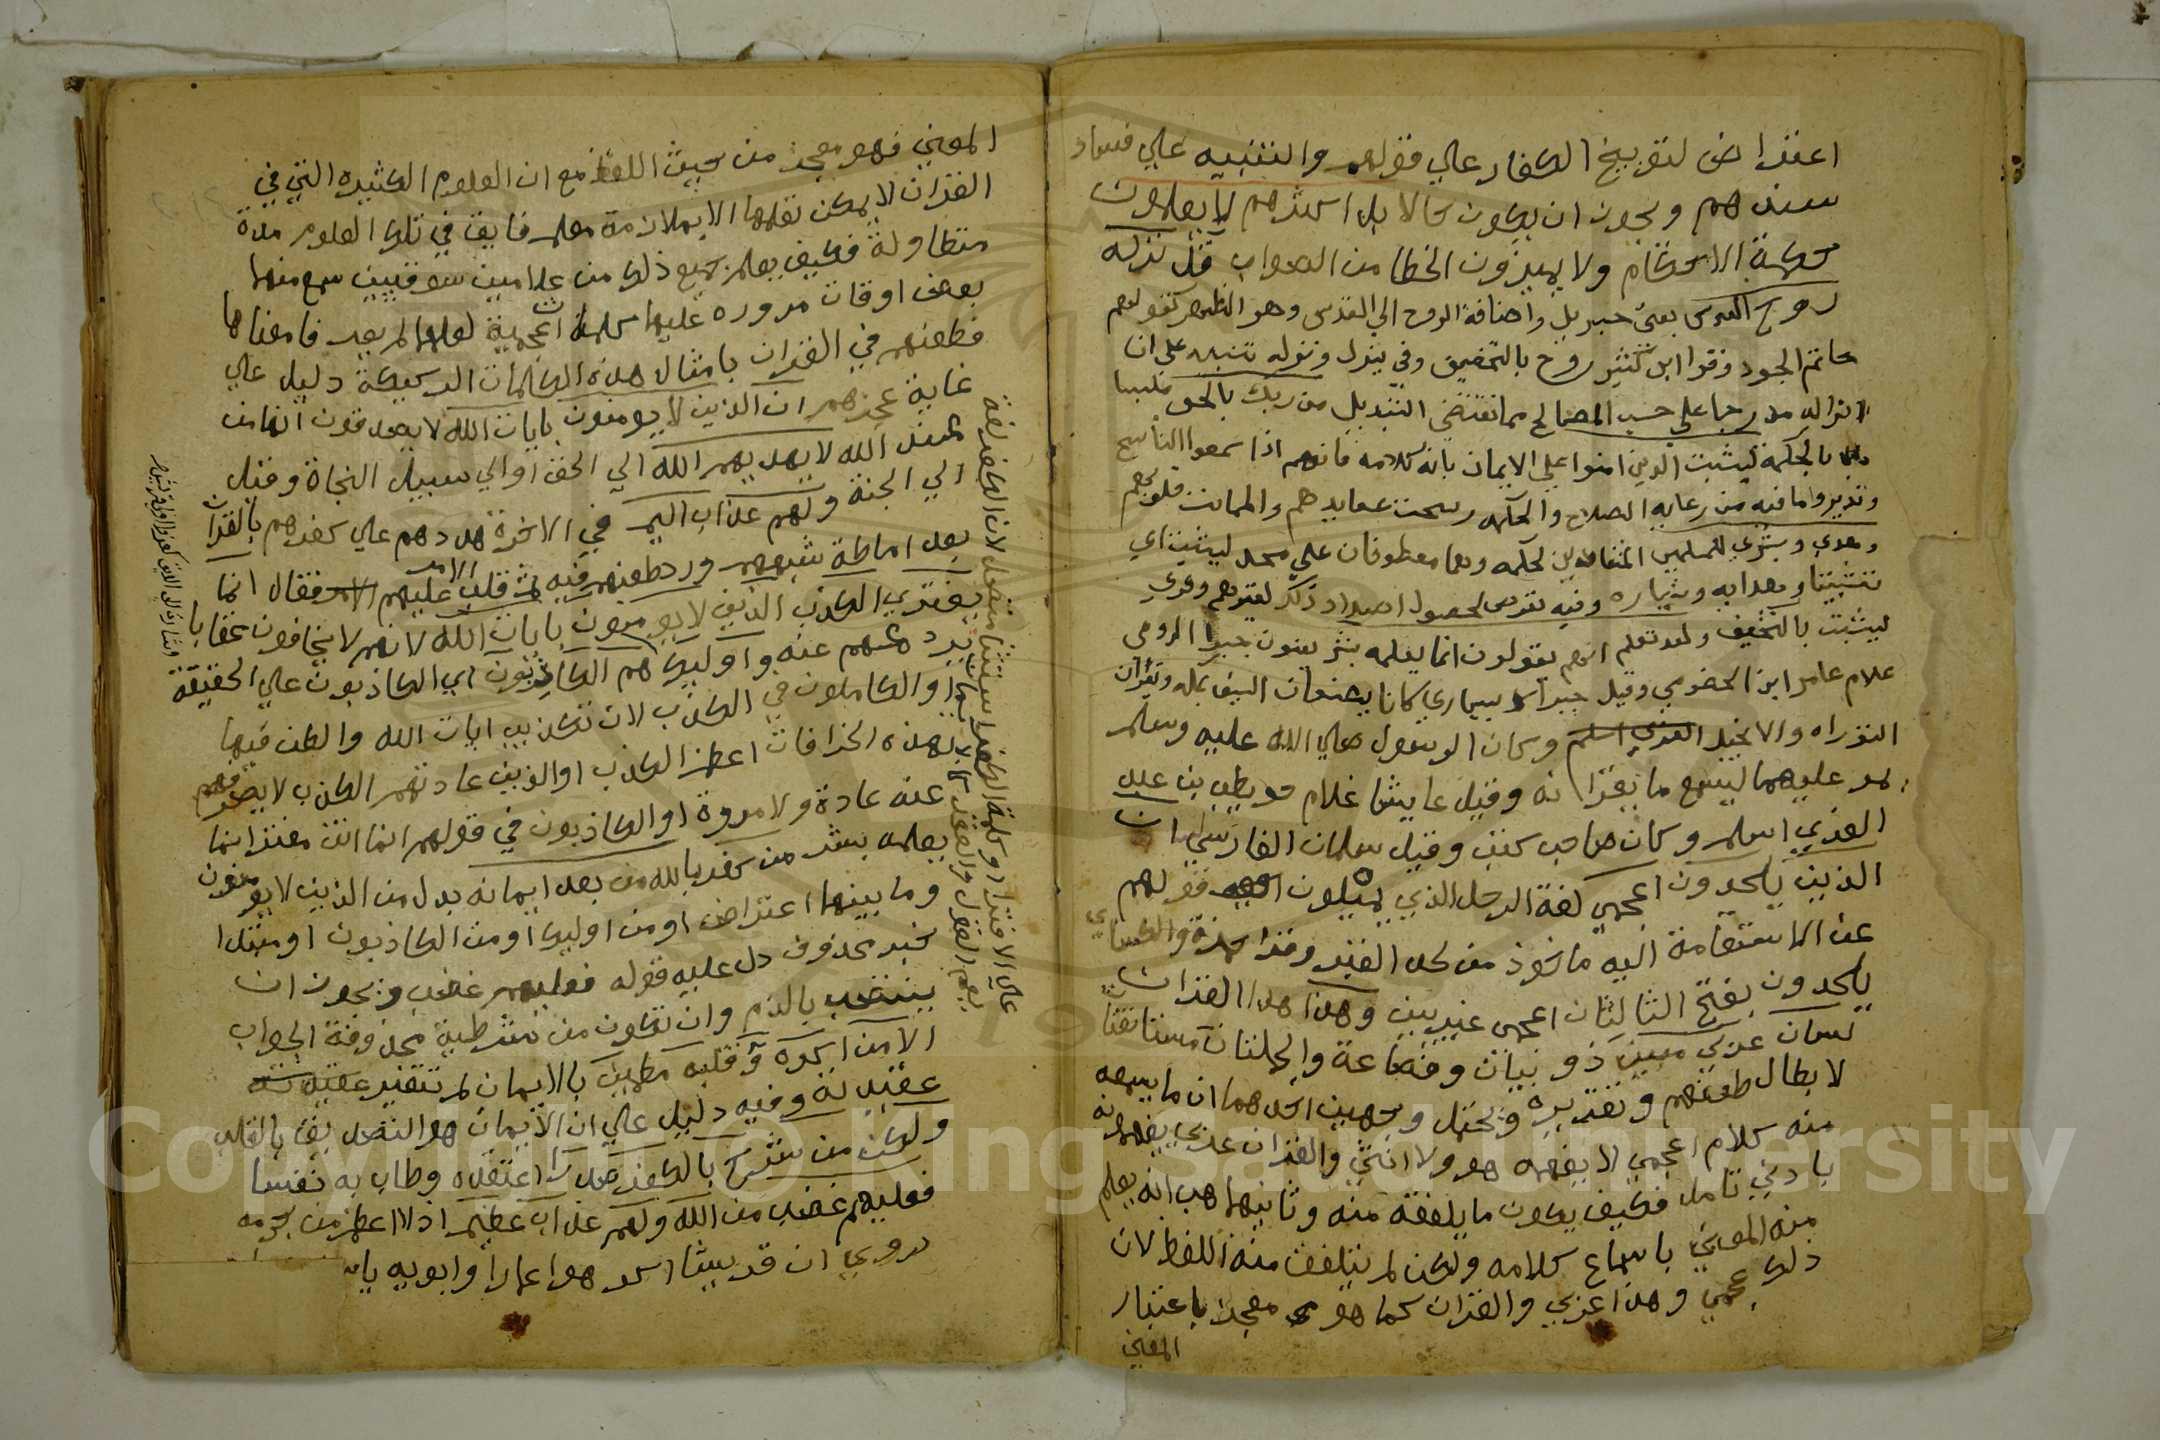 اعتراض لتوبيخ الكفار علي قولهم والتنبيه علي فساد
سندهم ويجوز ان يكون حالا بل اكثرهم لا يعلمون
حكمة الاحكام ولا يميزون الخطا من الصواب قل نزله
روح القدس يعني جبريل واضافة الروح الي القدس وهو الطهر كقولهم
حاتم الجود وقرا ابن كثير روح بالتخفيف وفي ينزل ونزله تنبيه علي ان
انزاله مدرجا علي حسب المصالح مما يقتضي التبديل من ربك بالحق ملتبسا
بالحكمة ليثبت الذين امنوا علي الايمان بانه كلامه فانهم اذا سمعوا الناسخ
وتدبروا ما فيه من رعاية الصلاح والحكمه رسخت عقايدهم واطمانت قلوبهم
وهدي وبشري للمسلمين المنقادين لحكمه وهما معطوفان علي محل ليثبت اي
تثبيتا وهدايه وبشاره وفيه تعريض لحصول اضداد ذلك لغيرهم وقري
ليثبت بالتخفيف ولقد نعلم انهم يقولون انما يعلمه بشر يعنون جبرا الرومي
غلام عامر ابن الحضرمي وقيل جبرا ويسارا كانا يصنعان السيف بمكه ويقران
التوراه والانجيل وكان الرسول صلي الله عليه وسلم
يمر عليهما ليسمع ما يقرانه وقيل عايشا غلام حويطب بن عبد
العزي اسلم وكان صاحب كتب وقيل سلمان الفارسي لسان
الذين يلحدون اعجمي لغة الرجل الذي يميلون قولهم
عن الاستقامة اليه ماخوذ من لحد القبر وقرا حمزة والكساي
يلحدون بفتح الثالثان اعجمي غير بين وهذا هذا القران
لسان عربي مبين ذو بيان وفصاحة والجملتان مستانفتان
لابطال طعنهم وتقريره يحتمل وجهين احدهما ان ما يسمعه
منه كلام اعجمي لا يفهمه هو ولا انتم والقران عربي يفهمونه
بادني تامل فكيف يكون ما يلقفه منه وثانيهما هب انه يعلم
منه المعني باسماع كلامه ولكن لم يتلقف منه اللفظ لان
ذلك عجمي وهذا عربي والقران كما هو معجز باعتبار
المعني
المعني فهو معجز من حيث اللفظ مع ان العلوم الكثيره التي في
القران لا يمكن تعلمها الا بملازمة معلم فايق في تلك العلوم مدة
متطاولة فكيف يعلم جميع ذلك من غلامين سوقيين سمع منهما
بعض اوقات مروره عليهما كلمات اعجمية لعله لم يعرف معناها
فطعنهم في القران بامثال هذه الكلمات الركيكة دليل علي
غاية عجزهم ان الذين لا يومنون بايات الله لا يصدقون انها من
عند الله لا يهديهم الله الي الحق او الي سبيل النجاة وقيل
الي الجنة ولهم عذاب اليم في الاخرة هددهم علي كفرهم بالقران
بعد اماطة شبههم ورد طعنهم فيه ثم قلب الامر عليهم فقال انما
يفتري الكذب الذين لا يومنون بايات الله لانهم لا يخافون عقابا
يردعهم عنه واوليك هم الكاذبون اي الكاذبون علي الحقيقة
او الكاملون في الكذب لان تكذيب ايات الله والطعن فيها
بهذه الخرافات اعظم الكذب او الذين عادتهم الكذب لا يصرفهم
عنه عادة ولا مروة او الكاذبون في قولهم انما انت مفتر انما
يعلمه بشر من كفر بالله من بعد ايمانه بدل من الذين لا يومنون
وما بينهما اعتراض او من اوليك او من الكاذبون او مبتدا
خبر محذوف دل عليه قوله فعليهم غضب ويجوز ان
ينتصب بالذم وان تكون من شرطية محذوفة الجواب
الا من اكره وقلبه مطمين بالايمان لم تتغير
عقيدته وفيه دليل علي ان الايمان هو التصديق بالقلب
ولكن من شرح بالكفر صدرا اعتقده وطاب به نفسا
فعليهم غضب من الله ولهم عذاب عظيم اذ لا اعظم من جرمه
روي ان قريشا اكرهوا عمارا وابويه ياسر